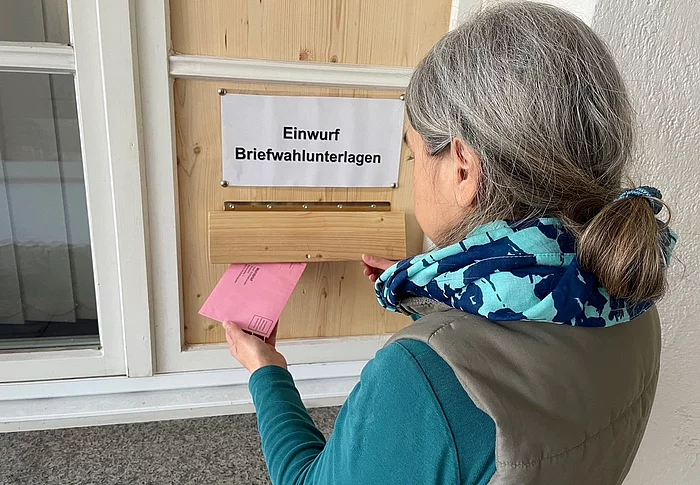 Einwurf
Briefwahlunterlagen